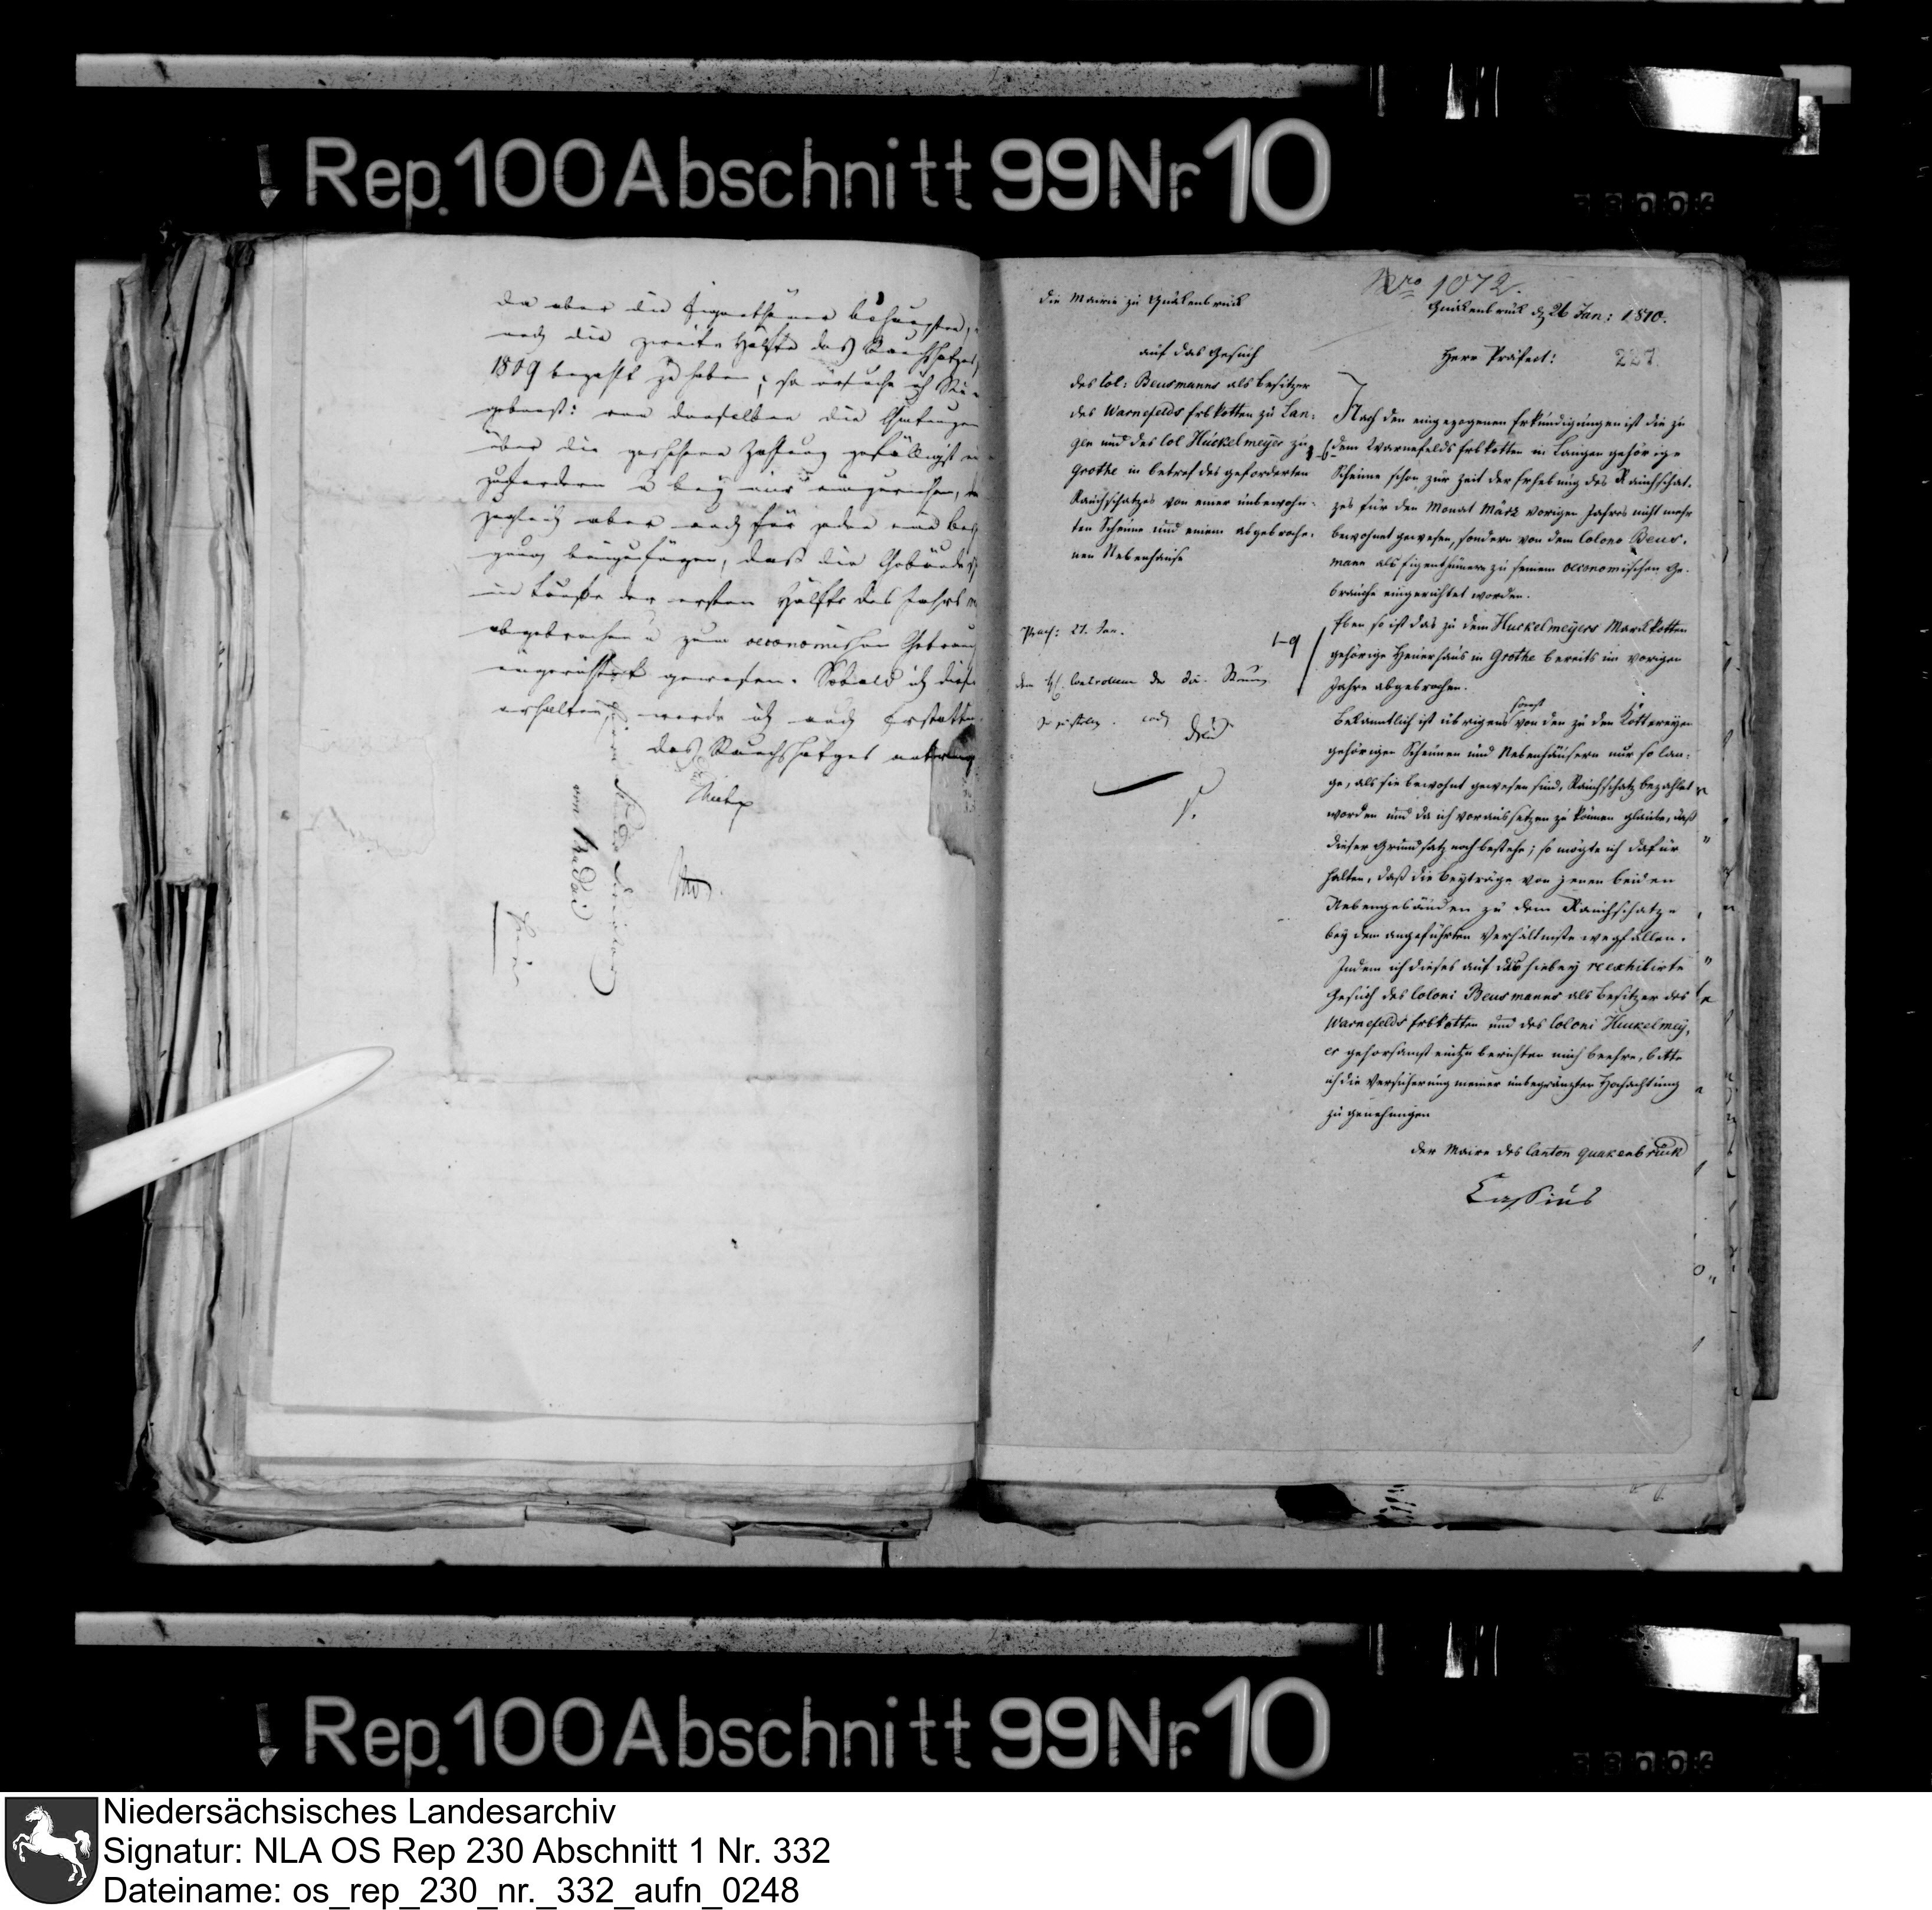 Rep. 100 Abschnitt 99 Nr. 10
da aber die Eigenthümer behaupten,
auch die zweite Hälfte des Rauchschatzes
1809 bezahlt zu haben; so ersuche ich Sie
gebenst: von denselben die Quitungen
über die geschehene Zahlung gefälligst
zufordern u bey mir einzureichen,
zugleich aber auch für jeden eine
gung beyzufügen, daß die Gebäude
im Laufe der ersten Hälfte des Jahrs
abgebrochen u zum oeconomischen
eingerichtet gewesen. Sobald ich diese
erhalten, werde ich auch
des Rauchschatzes
Nro 1072.
Die Mairie zu Quakenbrück
Quakenbrück d 26 Jan: 1810.
227
auf das Gesuch
des Col: Beusmanns als Besitzer
des Warnefelds Erbkotten zu Lan-
gen und des Col Huckelmeyer zu
Grothe in betref des geforderten
Rauchschatzes von einer unbewohn-
ten Scheune und einem abgebroche-
nen Nebenhause
Praes: 27. Jan.
Herr Präfect!
Nach den eingezogenen Erkundigungen ist die zu
dem Warnefelds Erbkotten in Langen gehörige
Scheune schon zur Zeit der Erhebung des Rauchschat-
zes für den Monat März vorigen Jahres nicht mehr
bewohnet gewesen, sondern von dem Colono Beus-
mann als Eigenthümern zu seinem oeconomischen Ge-
brauche eingerichtet worden.
Eben so ist das zu dem Huckelmeyers Markkotten
gehörige Heuerhaus in Grothe bereits im vorigen
Jahre abgebrochen.
Bekanntlich ist übrigens sonst von den zu den Kottereyen
gehörigen Scheunen und Nebenhäusern nur so lan-
ge, als sie bewohnt gewesen sind, Rauchschatz bezahlet
worden und da ich voraussetzen zu können glaube, daß
dieser Grundsatz noch bestehe; so mögte ich dafür
halten, daß die Beyträge von jenen beiden
Nebengebäuden zu dem Rauchschatze
bey dem angeführten Verhältnisse wegfallen.
Indem ich dieses auf das hiebey reexhibirte
Gesuch des Coloni Beusmanns als Besitzer des
Warnefelds Erbkotten und des Coloni Huckelmey-
er gehorsamst zu berichten mich beehre, bitte
ich die Versicherung meiner unbegränzten Hochachtung
zu genehmigen
Der Maire des Canton Quakenbrück
Cassius
Rep. 100 Abschnitt 99 Nr. 10
Niedersächsisches Landesarchiv
Signatur: NLA OS Rep 230 Abschnitt 1 Nr. 332
Dateiname: os_rep_230_nr._332_aufn_0248